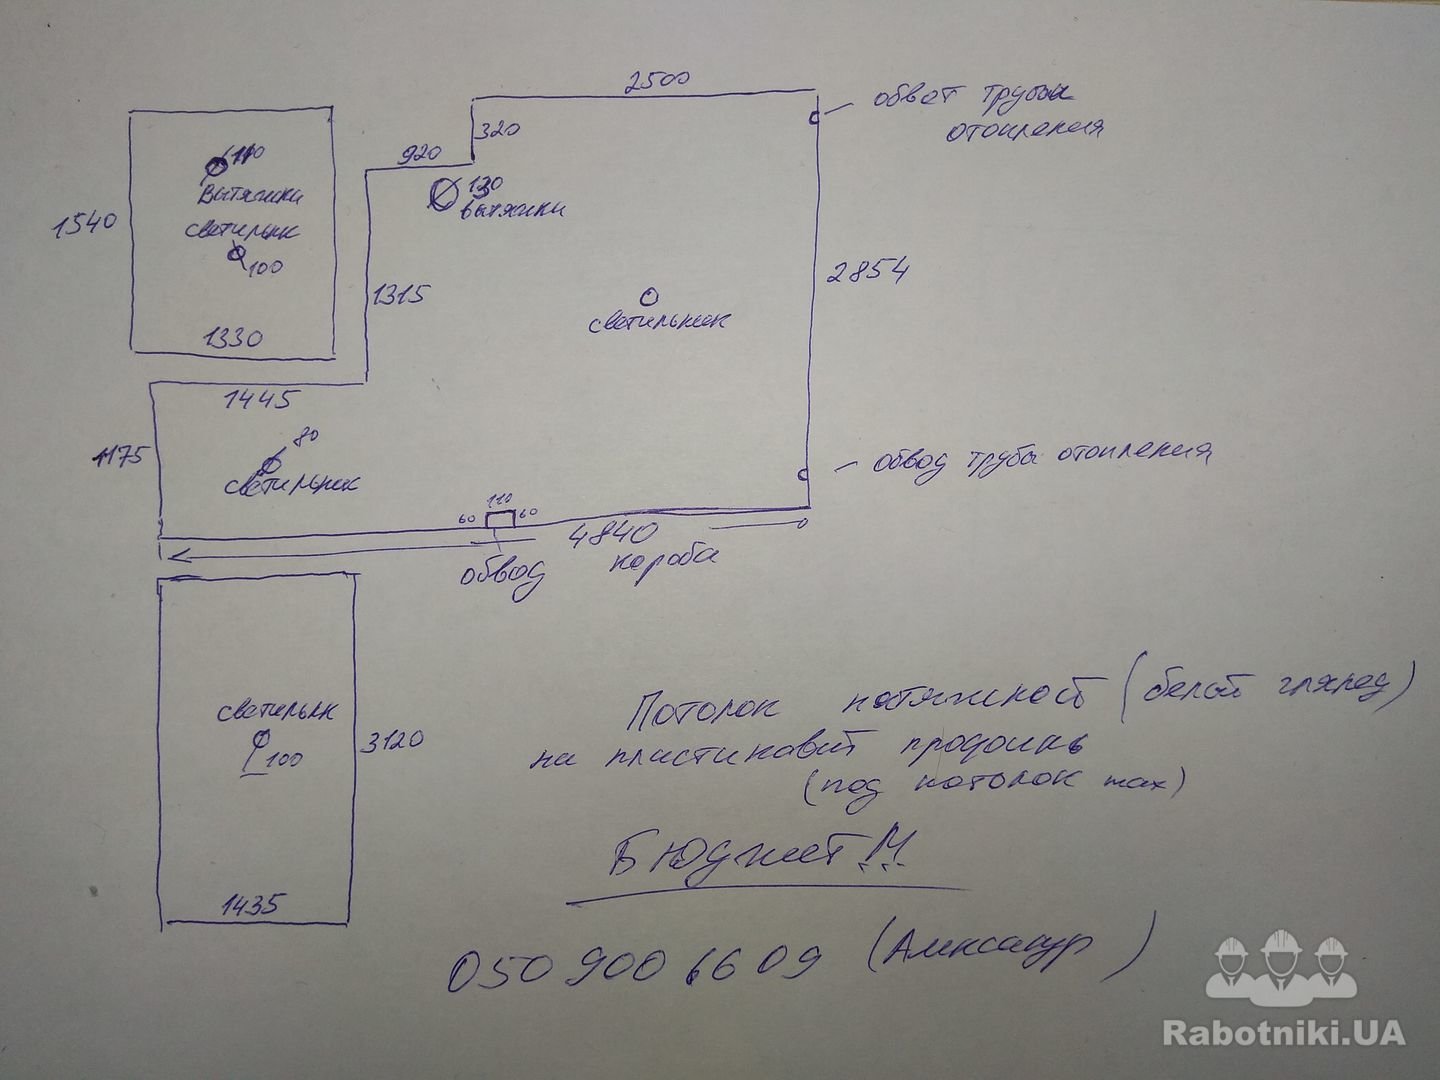 2500
обвет трубы
отопления
320
920
110
вытяжки
130
вытяжки
1540
светильник
100
2854
1315
светильник
1330
1445
80
1175
обвод трубы отопления
светильник
110
60 60
4840
обвод короба
светильник
100
3120
Потолок натяжной (белый глянец)
на пластиковый
(под потолок max)
1435
Бюджет М
050 900 66 09 (Александр)
Rabotniki.UA